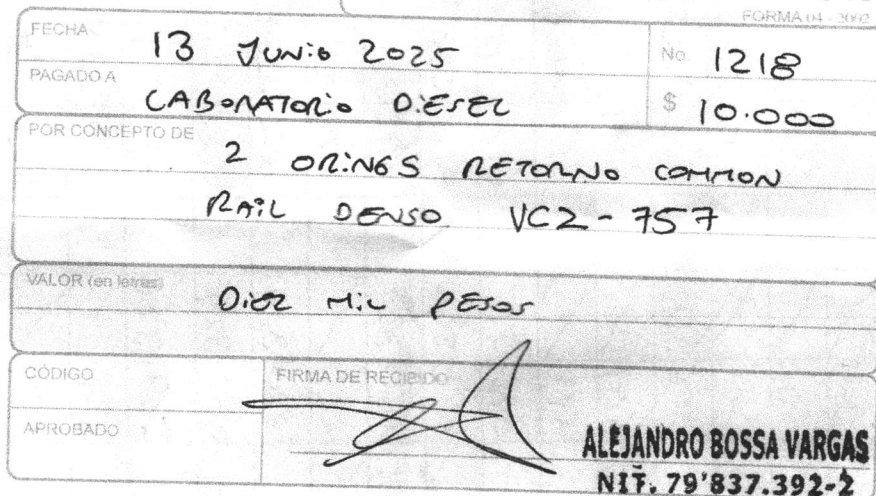 FORMA 04 - 2002
FECHA 13 JUNio 2025 No. 1218
PAGADO A LABORATORio DiESEL $ 10.000
POR CONCEPTO DE
2 ORiNGS RETORNO COMMON
RAiL DENSO VCZ-757
VALOR (en letras) DiEZ MiL PESOS
CÓDIGO FIRMA DE RECIBIDO
APROBADO
ALEJANDRO BOSSA VARGAS
NIT. 79'837.392-2